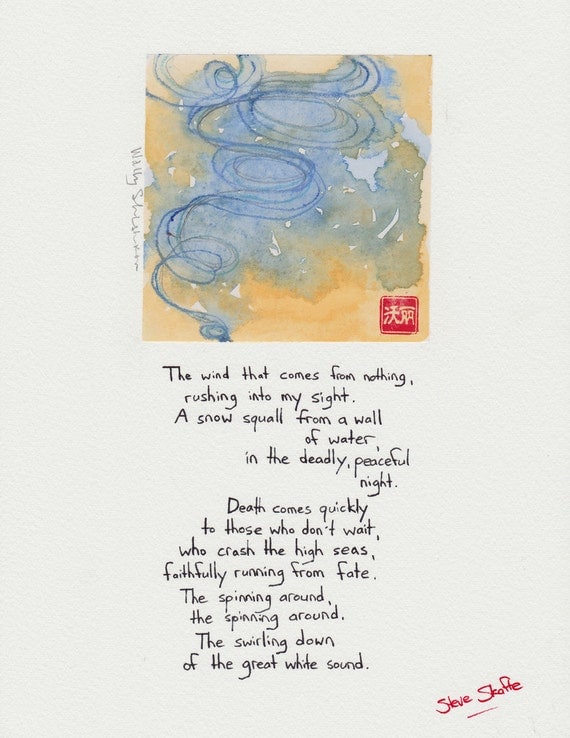 Wally
沃丽
The wind that comes from nothing,
rushing into my sight.
A snow squall from a wall
of water,
in the deadly, peaceful
night.
Death comes quickly
to those who don't wait,
who crash the high seas,
faithfully running from fate.
The spinning around,
the spinning around.
The swirling down
of the great white sound.
Steve Skafte